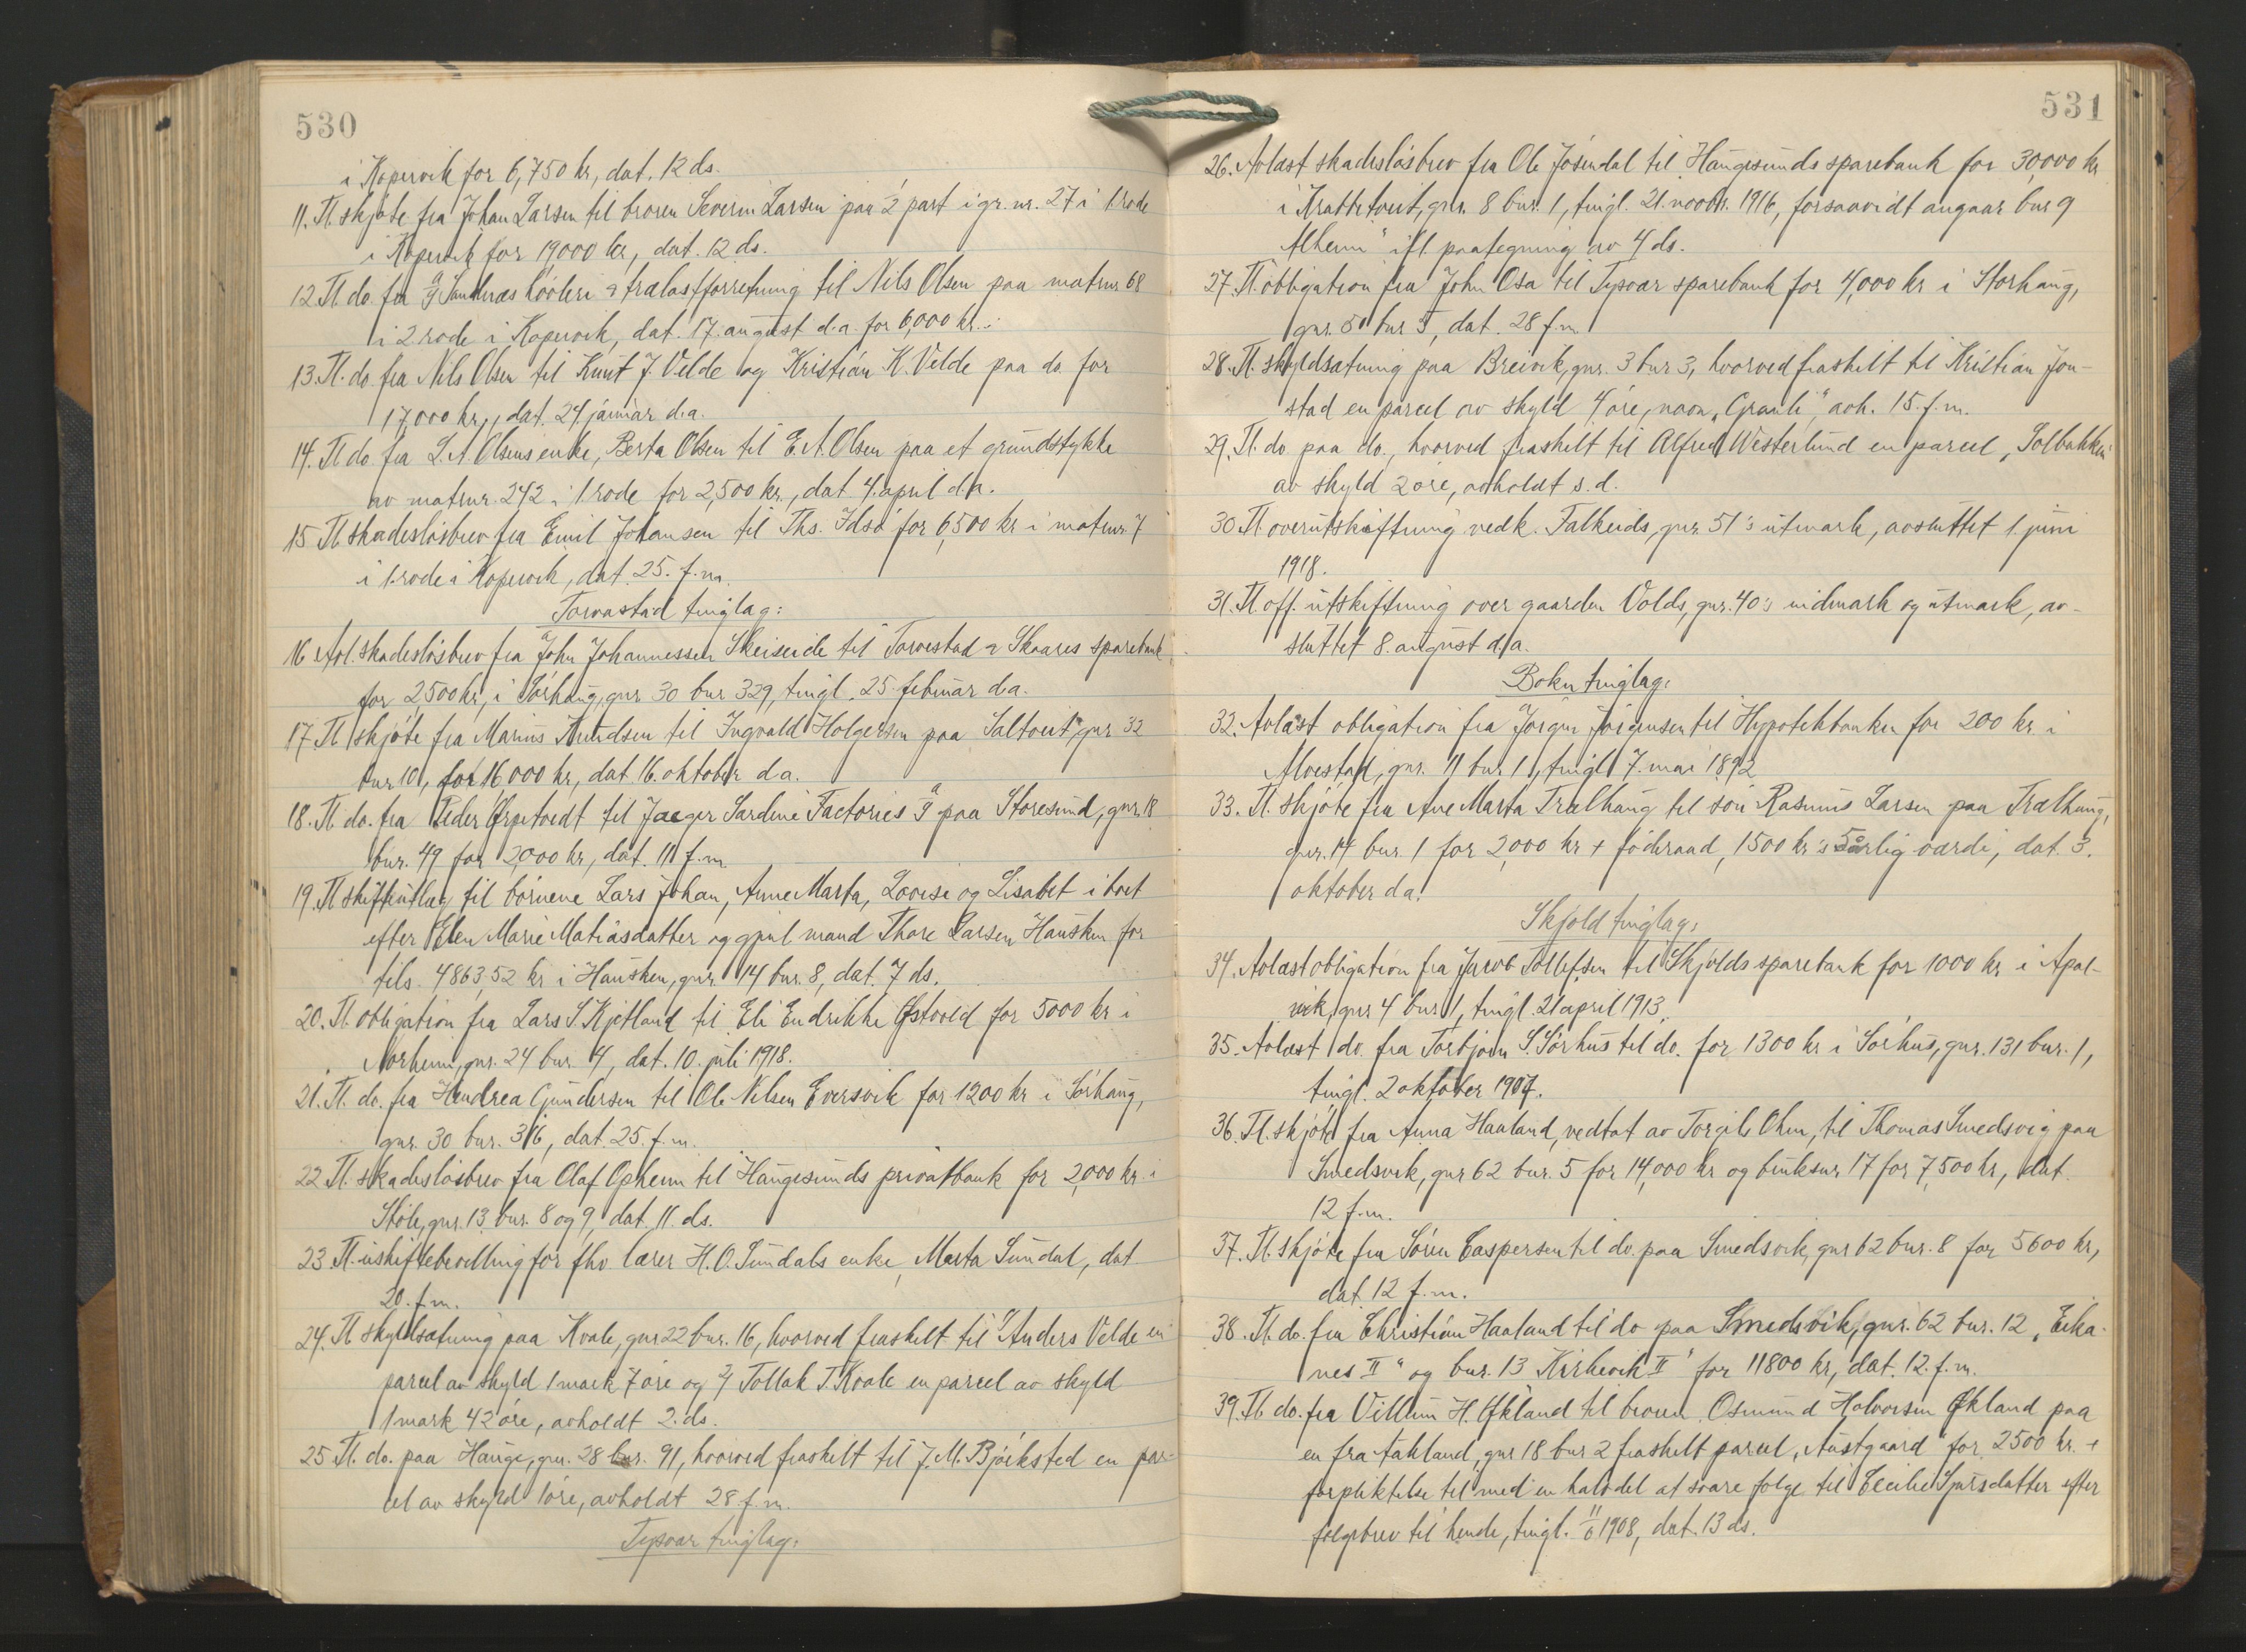 530
i Kopervik for 6,750 kr, dat. 12 ds.
11. Tl. skjøte fra Johan Larsen til broren Severin Larsen paa ½ part i gr. nr. 27 i 1 rode
i Kopervik for 19,000 kr, dat. 12 ds.
12. Tl. do. fra A/S høvleri & trælastforretning til Nils Olsen paa matrnr. 68
i 2 rode i Kopervik, dat. 17. august d.a. for 6,000 kr.
13. Tl. do. fra Nils Olsen til Knut J. Velde og Kristian K. Velde paa do. for
17,000 kr., dat. 24. januar d.a.
14. Tl. do. fra L. A. Olsens enke, Berta Olsen til E. A. Olsen paa et grundstykke
av matrnr. 242 i 1 rode for 2,500 kr., dat. 4. april d.a.
15. Tl. skadesløsbrev fra Emil Johansen til Ths. Idsø for 6,500 kr i matrnr. 7
i 1. rode i Kopervik, dat. 25. f.m.
Torvastad tinglag:
16. Avl. skadesløsbrev fra John Johannessen Skeiseide til Torvestad & Skaares sparebank
for 2,500 kr, i Sørhaug, gnr. 30 bnr. 329, tingl. 25. februar d.a.
17. Tl. skjøte fra Marius Knudsen til Ingvald Holgersen paa Saltveit, gnr. 32
bnr. 10, for 16000 kr, dat. 16. oktober d.a.
18. Tl. do. fra Peder Ørpetvedt til Jaeger Sardine Factories A/S paa Storesund, gnr. 18
bnr. 49 for 2,000 kr, dat. 11 f.m.
19. Tl. skifteutlæg til børnene Lars Johan, Anne Marta, Lovise og Lisabet i boet
efter Elen Marie Matiasdatter og gjenl. mand Thore Larsen Hausken for
tils. 4863,52 kr i Hausken, gnr. 14 bnr. 8, dat. 7 ds.
20. Tl. obligation fra Lars S. Kjetland til Eli Endrikke Østvold for 5000 kr i
Norheim, gnr. 24 bnr. 4, dat. 10. juli 1918.
21. Tl. do. fra Hendrea Gundersen til Ole Nilsen Eversvik for 1200 kr i Sørhaug,
gnr. 30 bnr. 316, dat. 25. f.m.
22. Tl. skadesløsbrev fra Olaf Opheim til Haugesunds privatbank for 2,000 kr. i
Stole, gnr. 13 bnr. 8 og 9, dat. 11. ds.
23. Tl. uskiftebevilling for fhv. lærer H. O. Sundals enke, Marta Sundal, dat.
20. f.m.
24. Tl. skyldsætning paa Kvale, gnr. 22 bnr. 16, hvorved fraskilt til 1) Anders Velde en
parcel av skyld 1 mark 7 øre og 2) Tollak T. Kvale en parcel av skyld
1 mark 42 øre, avholdt 2. ds.
25. Tl. do. paa Hauge, gnr. 28 bnr. 91, hvorved fraskilt til J. M. Bjørksted en par-
cel av skyld 1 øre, avholdt 28. f.m.
Tysvær tinglag:
531
26. Avlæst skadesløsbrev fra Ole Jøsendal til Haugesunds sparebank for 30,000 kr
i Krattetveit, gnr. 8 bnr. 1, tingl. 21. novbr. 1916, forsaavidt angaar bnr. 9
Alheim" ifl. paategning av 4 ds.
27. Tl. obligation fra John Osa til Tysvær sparebank for 4,000 kr i Storhaug,
gnr. 50 bnr. 5, dat. 28 f.m.
28. Tl. skyldsætning paa Breivik, gnr. 3 bnr. 3, hvorved fraskilt til Kristian Jon-
stad en parcel av skyld 4 øre, navn „Granli", avh. 15. f.m.
29. Tl. do. paa do., hvorved fraskilt til Alfred Westerlund en parcel „Solbakken"
av skyld 2 øre, avholdt s.d.
30. Tl. overutskiftning vedk. Falkeids, gnr. 51's utmark, avsluttet 1. juni
1918.
31. Tl. off. utskiftning over gaarden Volds, gnr. 40's indmark og utmark, av-
sluttet 8. august d.a.
Bokn tinglag:
32. Avlæst obligation fra Jørgen Jørgensen til Hypotekbanken for 200 kr. i
Alvestad, gnr. 11 bnr. 1, tingl. 7. mai 1892
33. Tl. skjøte fra Ane Marta Trælhaug til søn Rasmus Larsen paa Trælhaug,
gnr. 14 bnr. 1 for 2,000 kr + føderaad, 1500 kr's 5årlig værdi, dat. 3.
oktober d.a.
Skjold tinglag:
34. Avlæst obligation fra Jacob Tollefsen til Skjolds sparebank for 1000 kr i Apel-
vik, gnr. 4 bnr. 1, tingl. 21 april 1913.
35. Avlæst do. fra Torbjørn S. Sørhus til do. for 1300 kr i Sørhus, gnr. 131 bnr. 1,
tingl. 2 oktober 1907.
36. Tl. skjøte fra Anna Haaland, vedtat av Torgils Ohm, til Thomas Smedsvig paa
Smedsvik, gnr. 62 bnr. 5 for 14,000 kr og bruksnr. 17 for 7,500 kr, dat.
12 f.m.
37. Tl. skjøte fra Søren Caspersen til do. paa Smedsvik, gnr. 62 bnr. 8 for 5600 kr,
dat. 12 f.m.
38. Tl. do. fra Christian Haaland til do paa Smedsvik, gnr. 62 bnr. 12 „Eika-
nes II" og bnr. 13 Kirkevik II" for 11800 kr, dat. 12. f.m.
39. Tl. do. fra Villum H. Økland til broren Osmund Halvorsen Økland paa
en fra Aakland, gnr. 18 bnr. 2 fraskilt parcel „Austgaard" for 2500 kr. +
forpliktelse til med en halvdel at svare følge til Cecilie Sjursdatter efter
følgebrev til hende, tingl. 11/6 1908, dat. 13 ds.